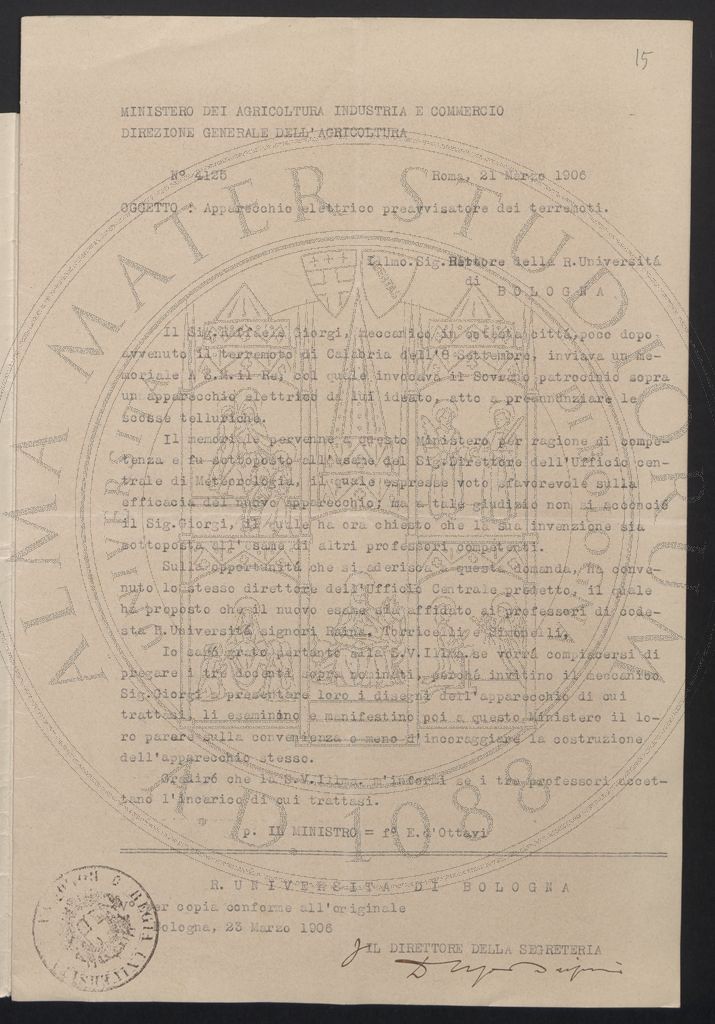 15
MINISTERO DEI AGRICOLTURA INDUSTRIA E COMMERCIO
DIREZIONE GENERALE DELL'AGRICOLTURA
N° 4125 Roma, 21 Marzo 1906
OGGETTO : Apparecchio elettrico preavvisatore dei terremoti.
Illmo.Sig.Rettore della R.Universitá
di
BOLOGNA
Il Sig.Raffaele Giorgi, meccanico in cotesta città,poco dopo
avvenuto il terremoto di Calabria dell'8 Settembre, inviava un me-
moriale A S.M.il Re, col quale invocava il Sovrano patrocinio sopra
un apparecchio elettrico da lui ideato, atto a preannunziare le
scosse telluriche.
Il memoriale pervenne a questo Ministero per ragione di compe-
tenza e fu sottoposto all'esame del Sig.Direttore dell'Ufficio cen-
trale di Meteorologia, il quale espresse voto sfavorevole sulla
efficacia del nuovo apparecchio; ma a tale giudizio non si acconció
il Sig.Giorgi, il quale ha ora chiesto che la sua invenzione sia
sottoposta all' same di altri professori competenti.
Sulla opportunitá che si aderisca a questa domanda, ha conve-
nuto lo stesso direttore dell'Ufficio Centrale predetto, il quale
há proposto che il nuovo esame sia affidato ai professori di code-
sta R.Universitá signori Raina, Torricelli e Simonelli,
Io saró grato pertanto alla S.V.Illma.se vorrá compiacersi di
pregare i tre docenti sopra nominati, perché invitino il meccanico
Sig.Giorgi a presentare loro i disegni dell'apparecchio di cui
trattasi, li esaminino e manifestino poi a questo Ministero il lo-
ro parere sulla convenienza o meno d'incoraggiare la costruzione
dell'apparecchio stesso.
Gradiró che la S.V.Illma. m'informi se i tre professori accet-
tano l'incarico di cui trattasi.
p. IL MINISTRO = f° E.d'Ottavi
R. UNIVERSITA DI BOLOGNA
Per copia conforme all'originale
Bologna, 23 Marzo 1906
IL DIRETTORE DELLA SEGRETERIA
ALMA MATER STUDIORUM
A.D. 1088